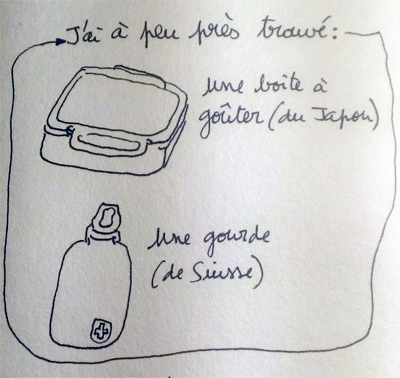 J'ai à peu près trouvé:
une boîte à
goûter (du Japon)
une gourde
(de Suisse)